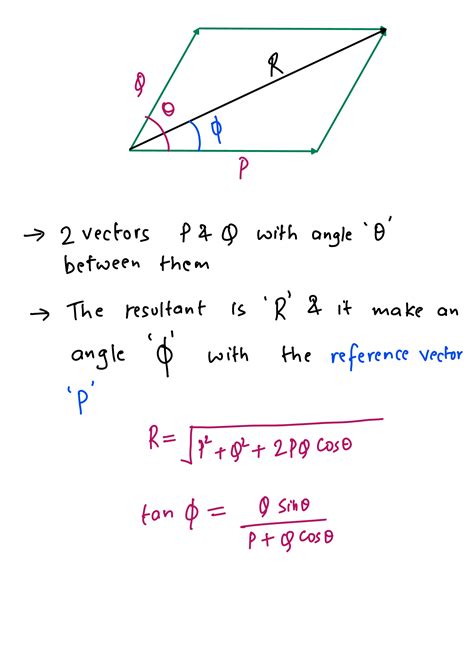 Q
θ
R
ϕ
P
→ 2 vectors P & Q with angle 'θ'
between them
→ The resultant is 'R' & it make an
angle 'ϕ' with the reference vector
'P'
R = √P² + Q² + 2PQ Cosθ
tan ϕ = Q Sinθ
P + Q Cosθ